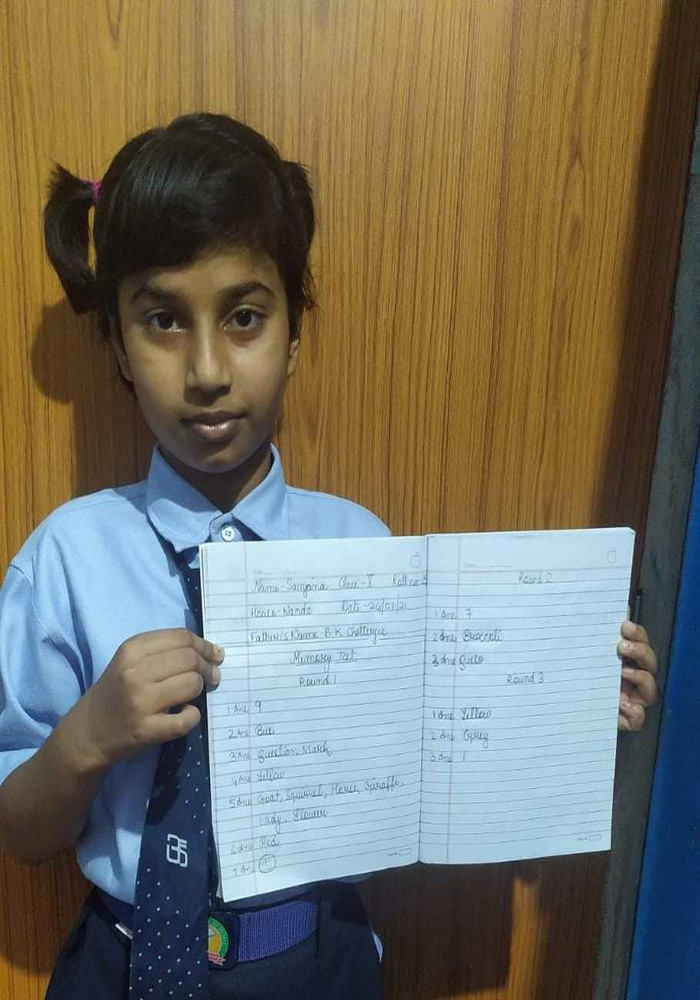 Name-Sanjaina Class-V Roll no-
House-Nanda Date-29/01/21
Father's Name B.K. Chatterjee
Memory Test
Round 1
1 Ans 9
2 Ans Bus
3 Ans Question Mark
4 Ans Yellow
5 Ans Goat, Squirrel, Horse, Giraffe,
Lady, Flower
6 Ans Red
7 Ans
Round 2
1 Ans 7
2 Ans Broccoli
3 Ans
Round 3
1 Ans Yellow
2 Ans Grey
3 Ans 1